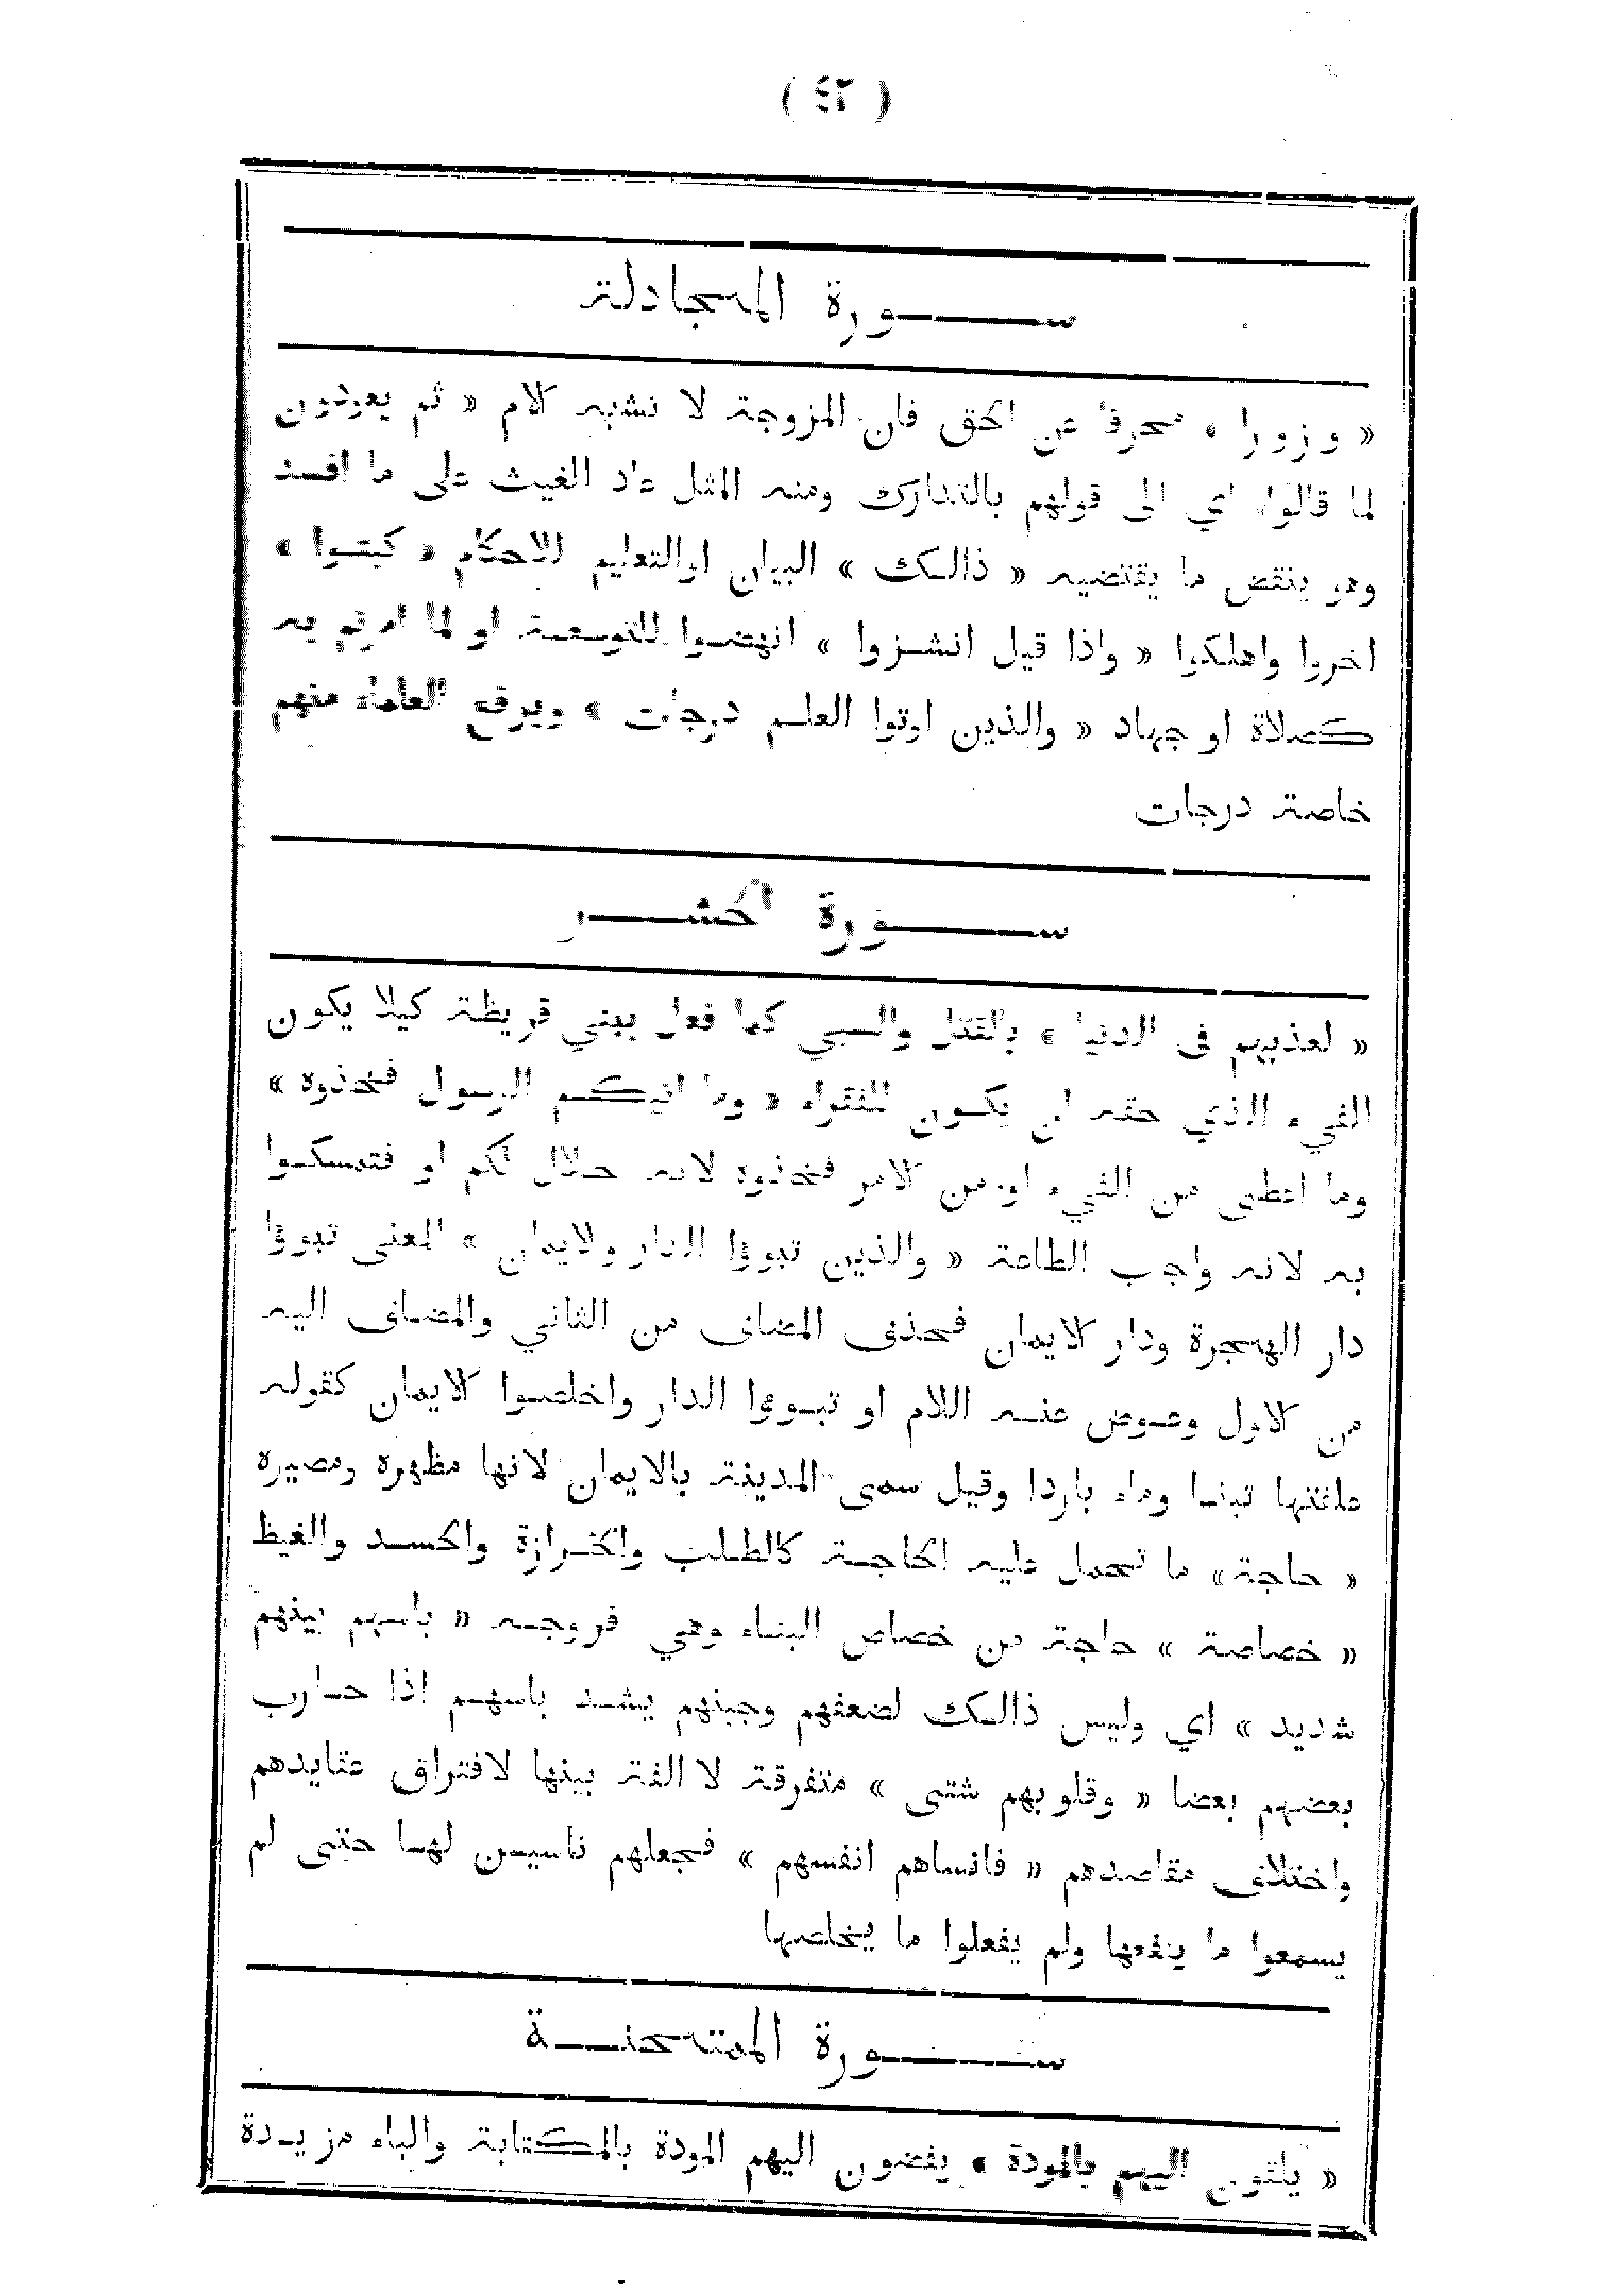 ( ٤٢ )
ســورة المجادلة
« وزورا » محرفا عن الحق فان الزوجة لا تشبه الام « ثم يعودون
لما قالوا اي الى قولهم بالتدارك ومنه المثل عاد الغيث على ما افسد
وهو ينقض ما يقتضيه « ذالك » البيان اوالتعليم للاحكام « كبتوا »
اخروا واهلكوا « واذا قيل انشزوا » انهضوا للتوسعة او لما امرتم به
كصلاة او جهاد « والذين اوتوا العلم درجات » ويرفع العلماء منهم
خاصة درجات
ســورة الحشر
« لعذبهم في الدنيا » بالقتل والسبي كما فعل ببني قريظة كيلا يكون
الفيء الذي حقه ان يكون للفقراء « وما اتيكم الرسول فخذوه »
وما اعطى من الفيء او من الامر فخذوه لانه حلال لكم او فتمسكوا
به لانه واجب الطاعة « والذين تبوؤا الدار والايمان » المعنى تبوؤا
دار الهجرة ودار الايمان فحذف المضاف من الثاني والمضاف اليه
من الاول وعوض عنه اللام او تبوؤا الدار واخلصوا الايمان كقوله
علفتها تبنا وماء باردا وقيل سمى المدينة بالايمان لانها مظهره ومصيره
« حاجة » ما تحمل عليه الحاجة كالطلب والخزازة والحسد والغيظ
« خصاصة » حاجة من خصاص البناء وهي فروجه « باسهم بينهم
شديد » اي وليس ذالك لضعفهم وجبنهم يشد باسهم اذا حارب
بعضهم بعضا « وقلوبهم شتى » متفرقة لا الفة بينها لافتراق عقايدهم
واختلاف مقاصدهم « فانساهم انفسهم » فجعلهم ناسين لها حتى لم
يسمعوا ما ينفعها ولم يفعلوا ما يخلصها
ســورة الممتحنة
« يلقون اليهم بالمودة » يفضون اليهم المودة بالمكتابة والباء مزيدة